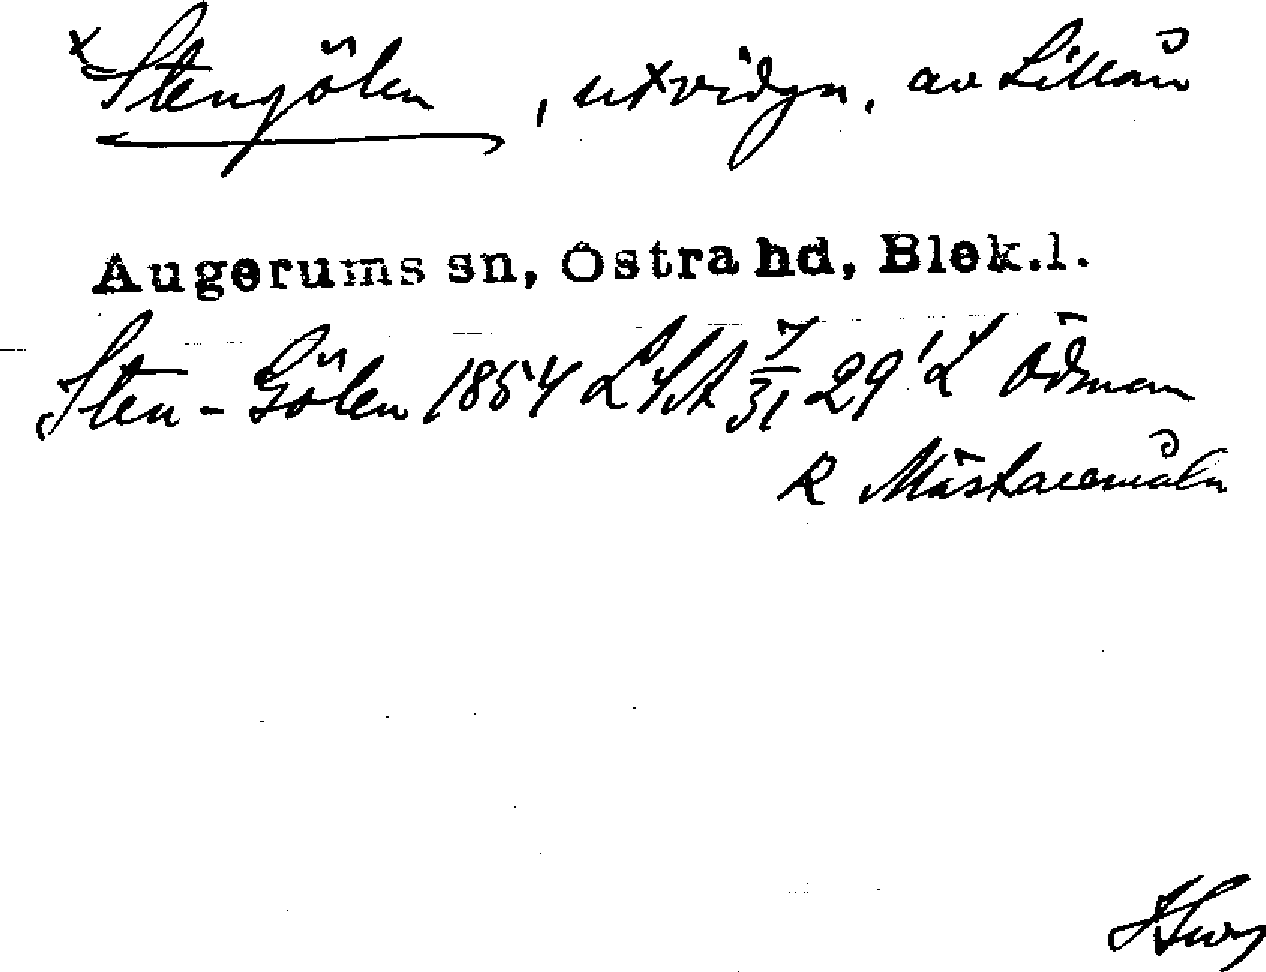 x Stengölen, utvidgn. av Lillån
Augerums sn, Östra hd, Blek.l.
Sten-Gölen 1854 LSA 7/31 29 L Ödman
R Mästaremåla